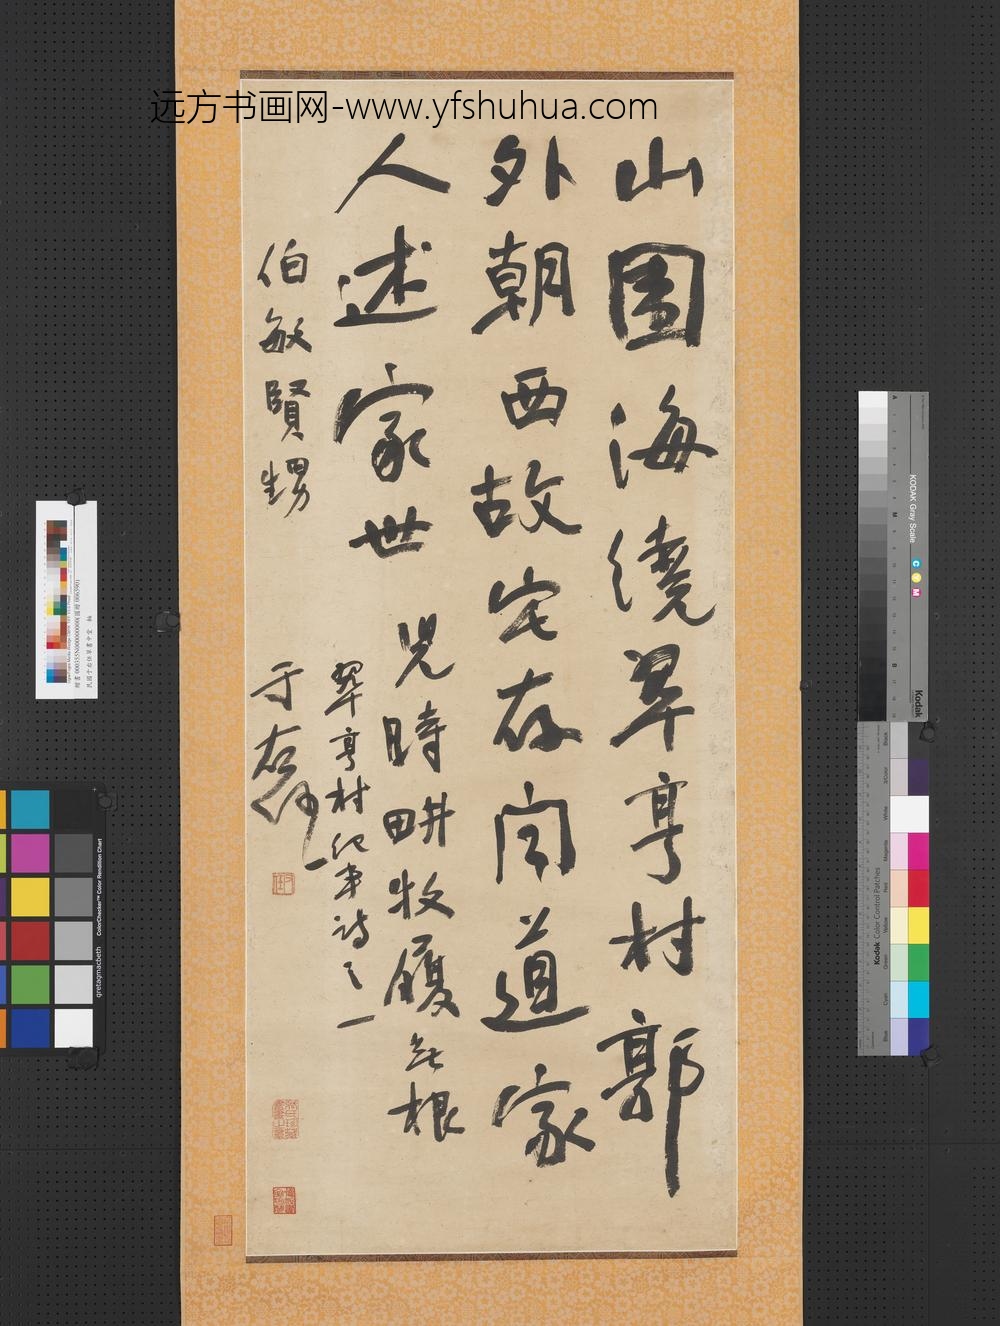 远方书画网-www.yfshuhua.com
山圍海繞翠亨村郭
外朝西故宅存聞道家
人述家世
兒時耕牧履無根
翠亨村紀事詩之一
伯敏賢甥
于右任
KODAK Gray Scale
C Y M
Kodak
Kodak Color Control Patches
Blue
Cyan
Green
Yellow
Red
Magenta
White
3/Color
Black
ColorChecker™ Color Rendition Chart
gretagmacbeth
民國于右任草書中堂 軸